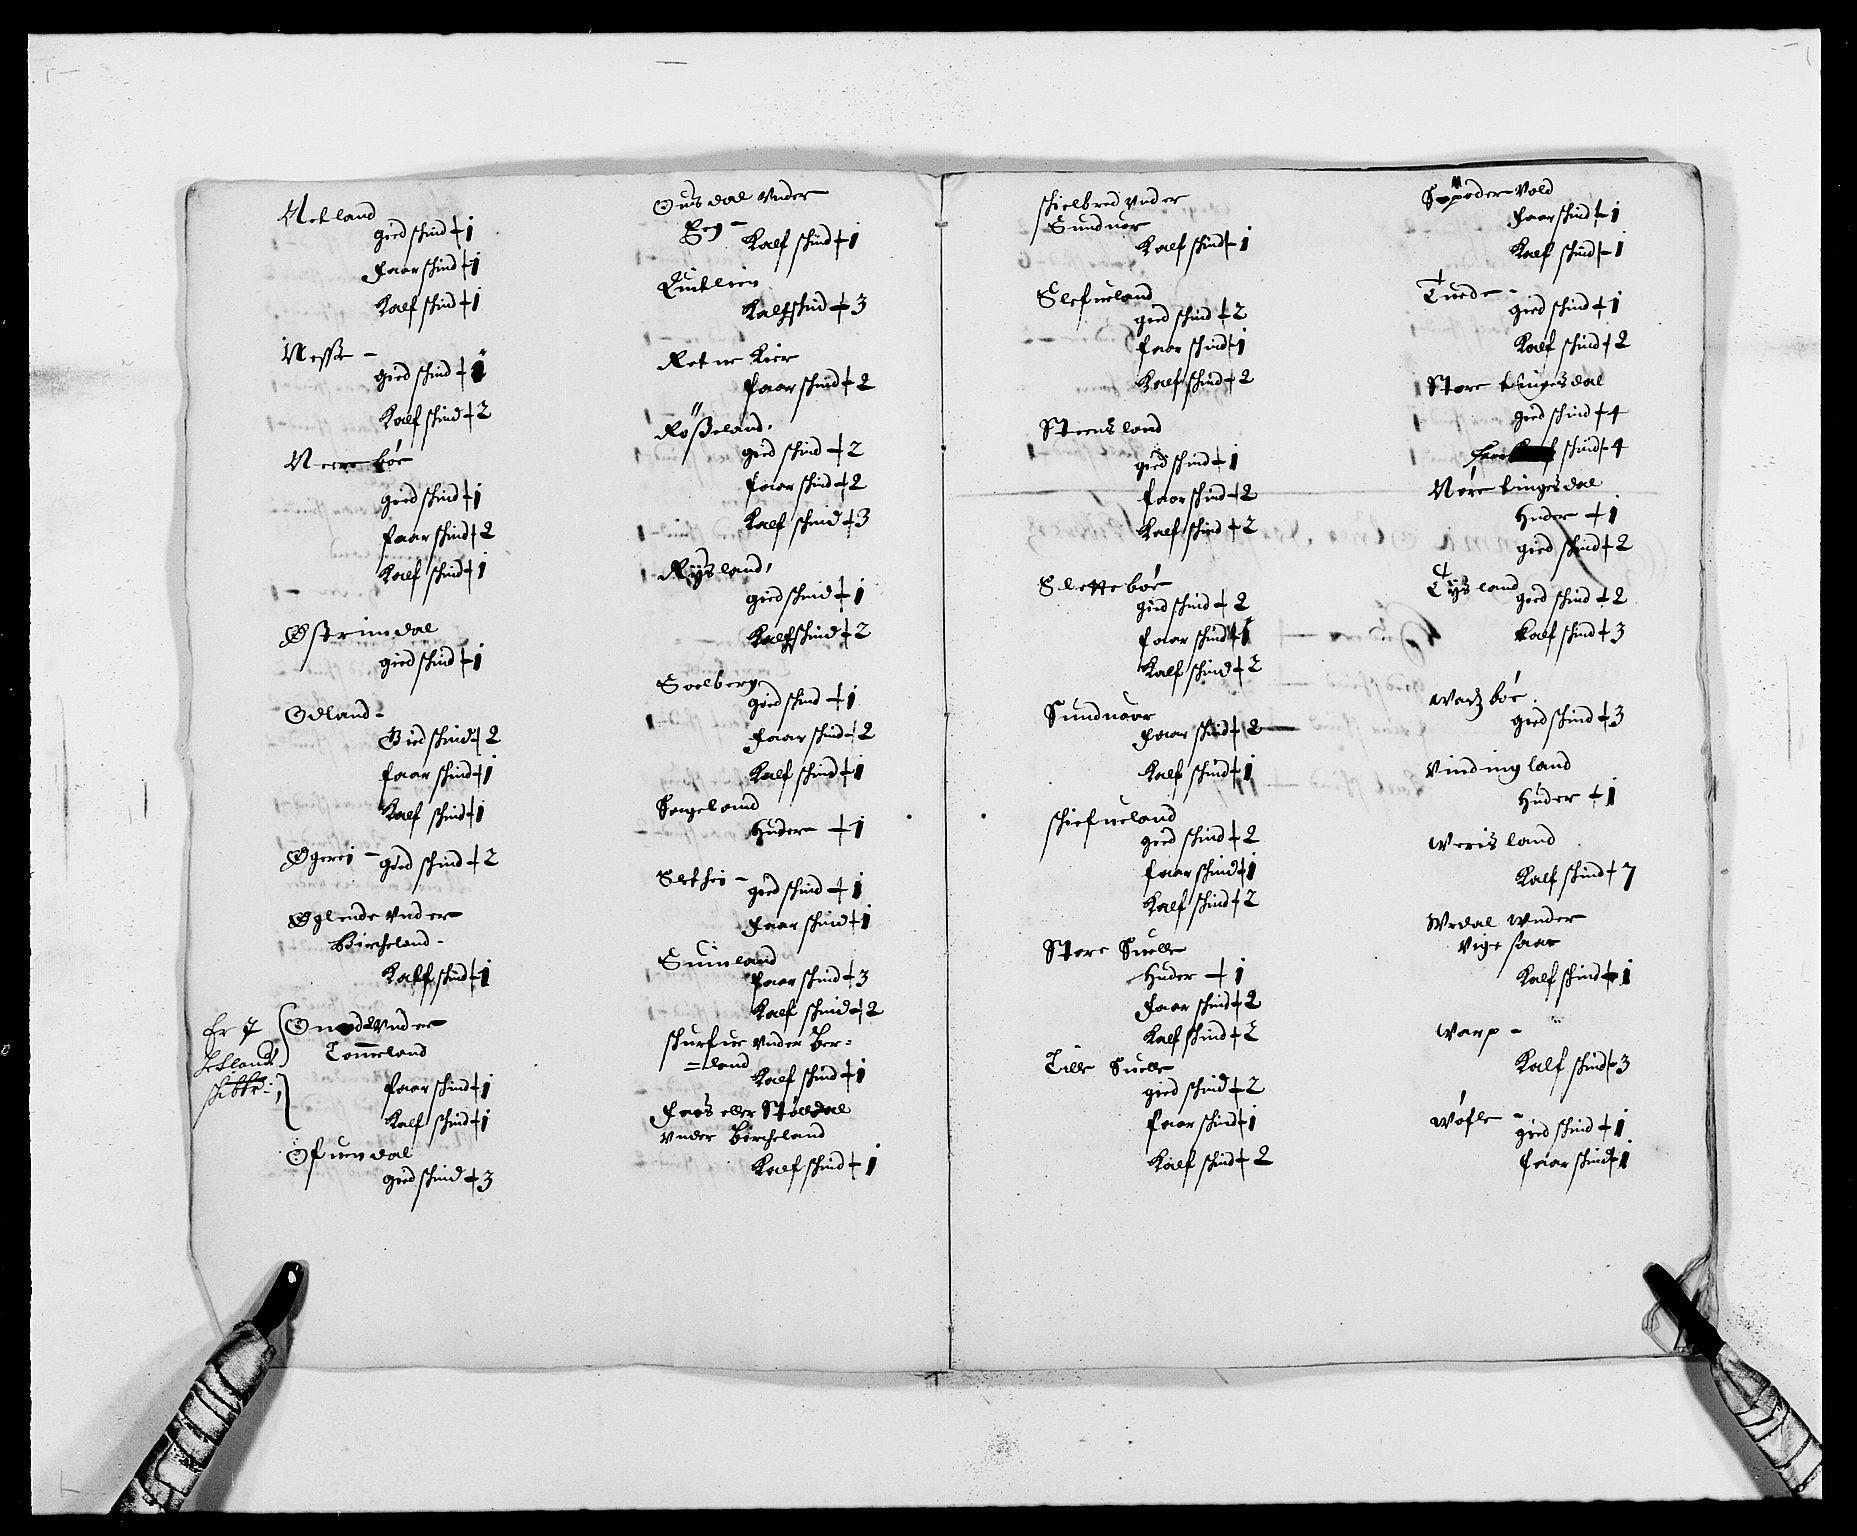 Netland
gied schind + 1
Faar schind + 1
Kalf schind + 1
Nesse -
gied schind + 1
Kalf schind + 2
Nerre bøe
gied schind + 1
Faar schind + 2
Kalf schind + 1
Østrimdal
gied schind + 1
Odland -
Gied schind + 2
Faar schind + 1
Kalf schind + 1
Øgrei - gied schind + 2
Øglende Vnder
Bircheland -
Kalf schind + 1
Er J
Vnder
Tonneland
Faar schind + 1
Kalf schind + 1
Øfuendal
gied schind + 3
Ousdal Vnder
Eeg -
Kalf schind + 1
Kalfschind + 3
Refne Kier
Faar schind + 2
Røßeland,
gied schind + 2
Faar schind + 2
Kalf schind + 3
Rysland,
gied schind + 1
Kalfschind + 2
Soelberg
gied schind + 1
Faar schind + 2
Kalf schind + 1
Sageland
Huder + 1
Slethei - gied schind + 1
Faar schind + 1
Suinland
Faar schind + 3
Kalf schind + 2
schurfue Vnder Ber=
=land
Kalf schind + 1
eller Støldal
Vnder Bircheland
Kalf schind + 1
schielbred Vnder
Sundnor
Kalf schind + 1
Slefueland
gied schind + 2
Faar schind + 1
Kalf schind + 2
Steensland
gied schind + 1
Faar schind + 2
Kalf schind + 2
Slettebøe
gied schind + 2
Faar schind + 1
Kalf schind + 2
Sundnaar
Faar schind + 2
Kalf schind + 1
schiefueland
gied schind + 2
Faar schind + 1
Kalf schind + 2
Store Suelle
Huder + 1
Faar schind + 2
Kalf schind + 2
Lille Suelle
gied schind + 2
Faar schind + 1
Kalf schind + 2
Vold
Faar schind + 1
Kalf schind + 1
Tuede -
gied schind + 1
Kalf schind + 2
Store Tingesdal
gied schind + 4
schind + 4
Nøre tingesdal
Huder + 1
gied schind + 2
Tysland gied schind + 2
Kalf schind + 3
bøe
gied schind + 3
Vindingland
Huder + 1
Werisland
Kalf schind + 7
Wrdal Wnder
Vige saae
Kalf schind + 1
Warp -
Kalf schind + 3
Wøfle - gied schind + 1
Faar schind + 1